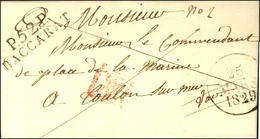 Monsieur no 1
P.52.P.
BACCARAT
Monsieur le Commandant
de place de la Marine
A Toulon sur mer
Var
25
1829